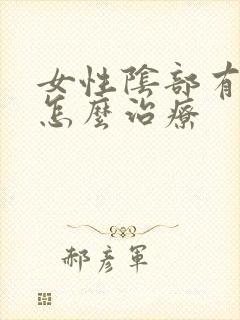 女性陰部有
怎麼治療
郝彥軍